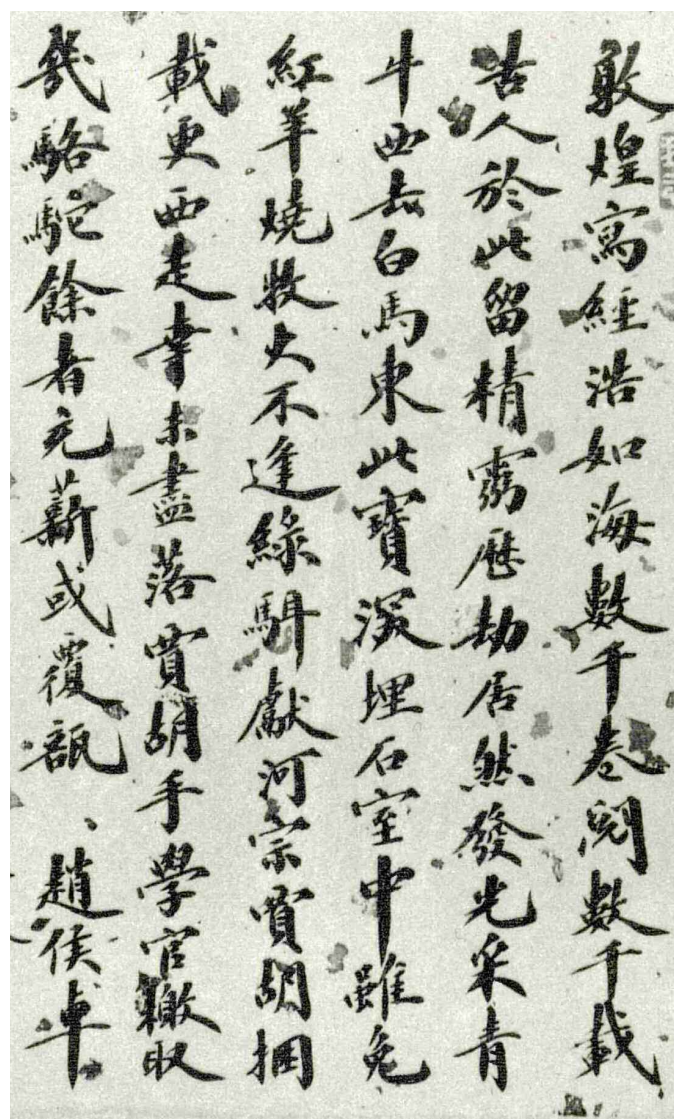 敦煌寫經浩如海數千卷閱數千載
昔人於此留精靈歷劫居然發光采青
牛西去白馬東此寶深埋石室中雖免
紅羊燒牧火不逢綠駬獻河宗賈胡捆
載更西走幸未盡落賈胡手學官輦取
幾駱駝餘者充薪或覆瓿 趙侯卓